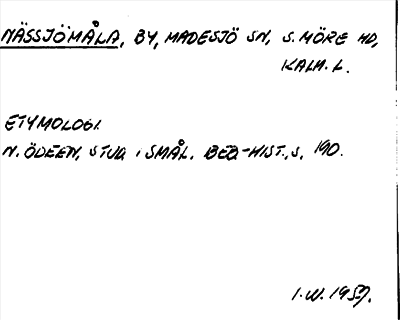 NÄSSJÖMÅLA, BY, MADESJÖ SN, S. MÖRE HD,
KALM. L.
ETYMOLOGI.
N. ÖDEEN, STUD. I SMÅL. BEB-HIST., S. 190.
I.W. 1957.